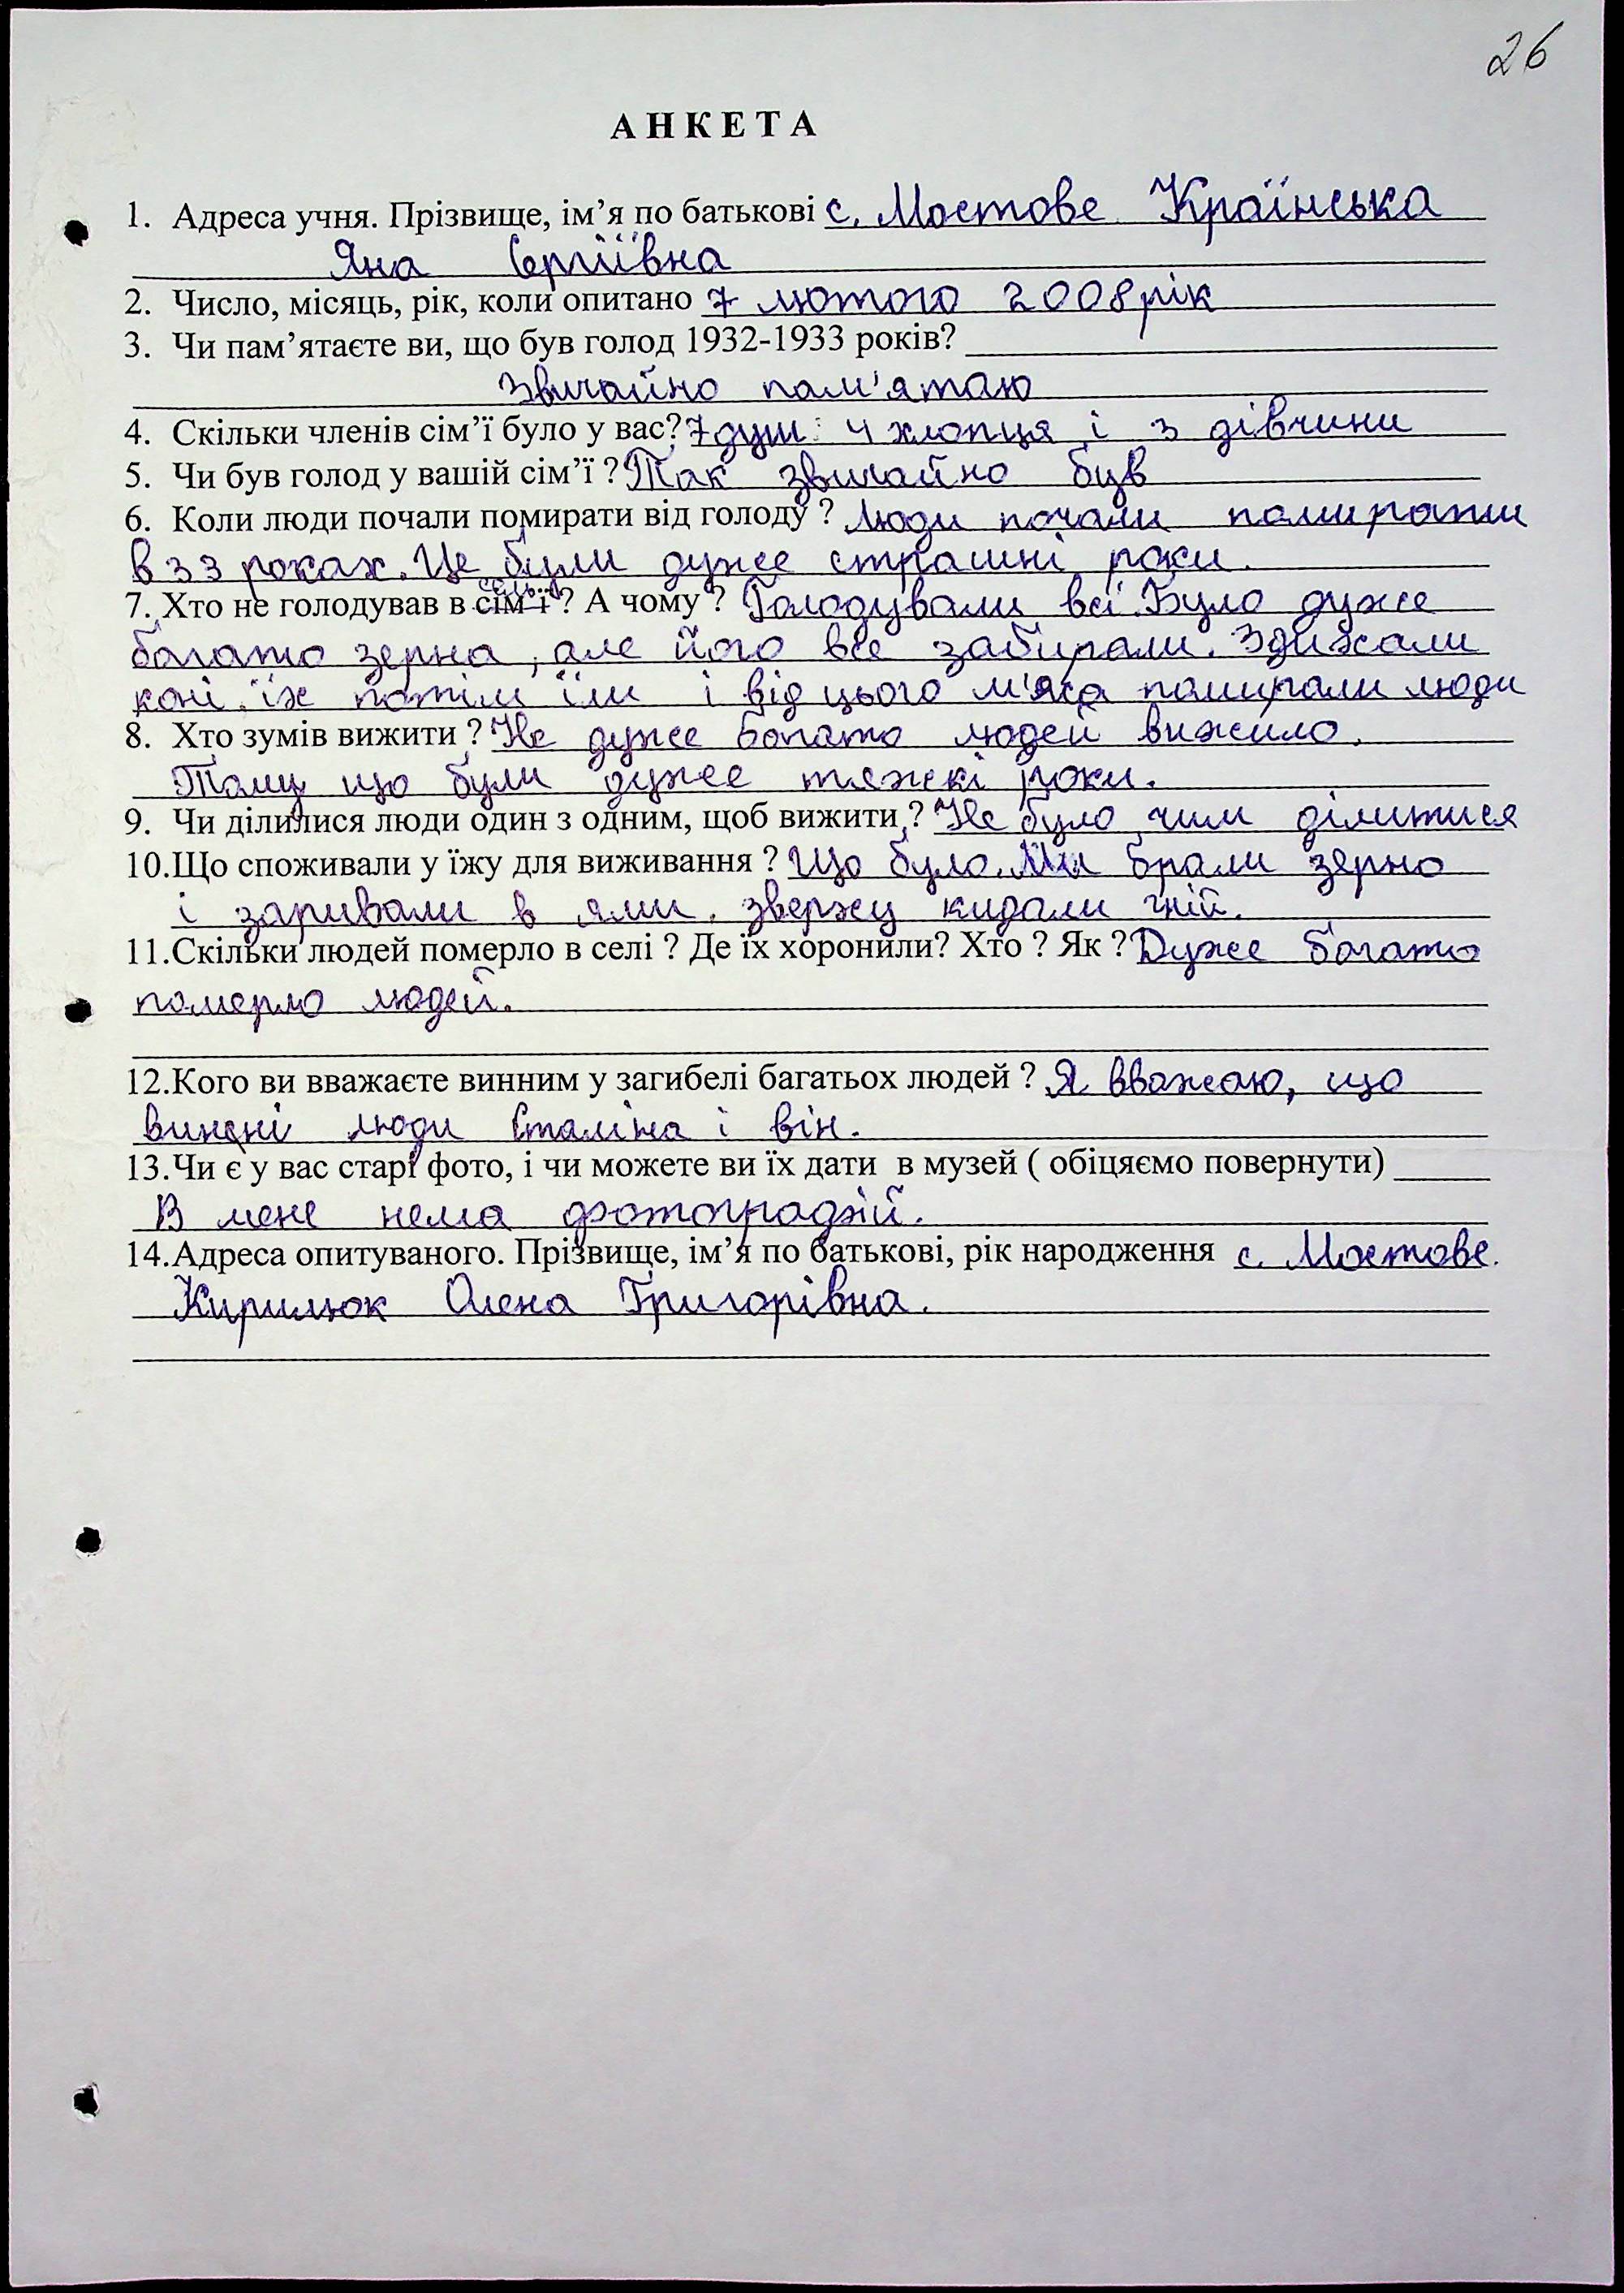 26
АНКЕТА
1. Адреса учня. Прізвище, ім’я по батькові с. Мостове Країнська
Яна Сергіївна
2. Число, місяць, рік, коли опитано 7 лютого 2008рік
3. Чи пам’ятаєте ви, що був голод 1932-1933 років?
Звичайно пам'ятаю
4. Скільки членів сім’ї було у вас? 7 душ: 4 хлопця і 3 дівчини
5. Чи був голод у вашій сім’ї ? Так звичайно був
6. Коли люди почали помирати від голоду ? Люди почали помирати
в 33 роках. Це були дуже страшні роки.
7. Хто не голодував в сім’ї ? А чому ? Голодували всі. Було дуже
багато зерна, але його все забирали. Здихали
коні їх потім їли і від цього м'яса помирали люди
8. Хто зумів вижити ? Не дуже багато людей вижило.
Тому що були дуже тяжкі роки.
9. Чи ділилися люди один з одним, щоб вижити ? Не було чим ділитися
10.Що споживали у їжу для виживання ? Що було. Ми брали зерно
і заривали в ями. зверху кидали гній.
11.Скільки людей померло в селі ? Де їх хоронили? Хто ? Як ? Дуже багато
померло людей.
12.Кого ви вважаєте винним у загибелі багатьох людей ? Я вважаю, що
винні люди Сталіна і він.
13.Чи є у вас старі фото, і чи можете ви їх дати в музей ( обіцяємо повернути)
В мене нема фотографій.
14.Адреса опитуваного. Прізвище, ім’я по батькові, рік народження с. Мостове.
Кирилюк Олена Григорівна.